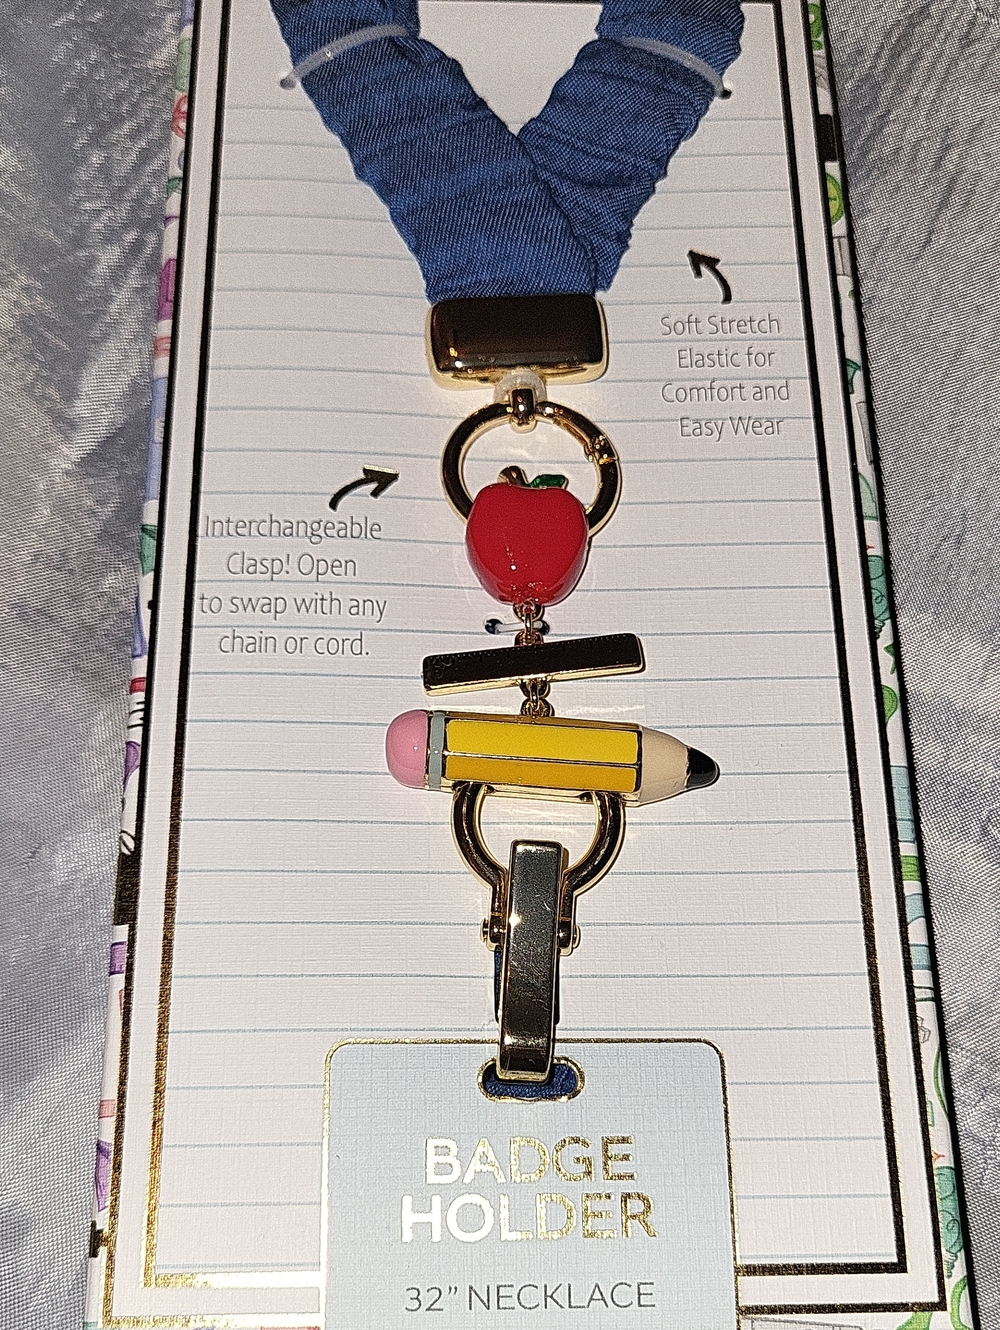 Soft Stretch
Elastic for
Comfort and
Easy Wear
Interchangeable
Clasp! Open
to swap with any
chain or cord.
BADGE
HOLDER
32” NECKLACE